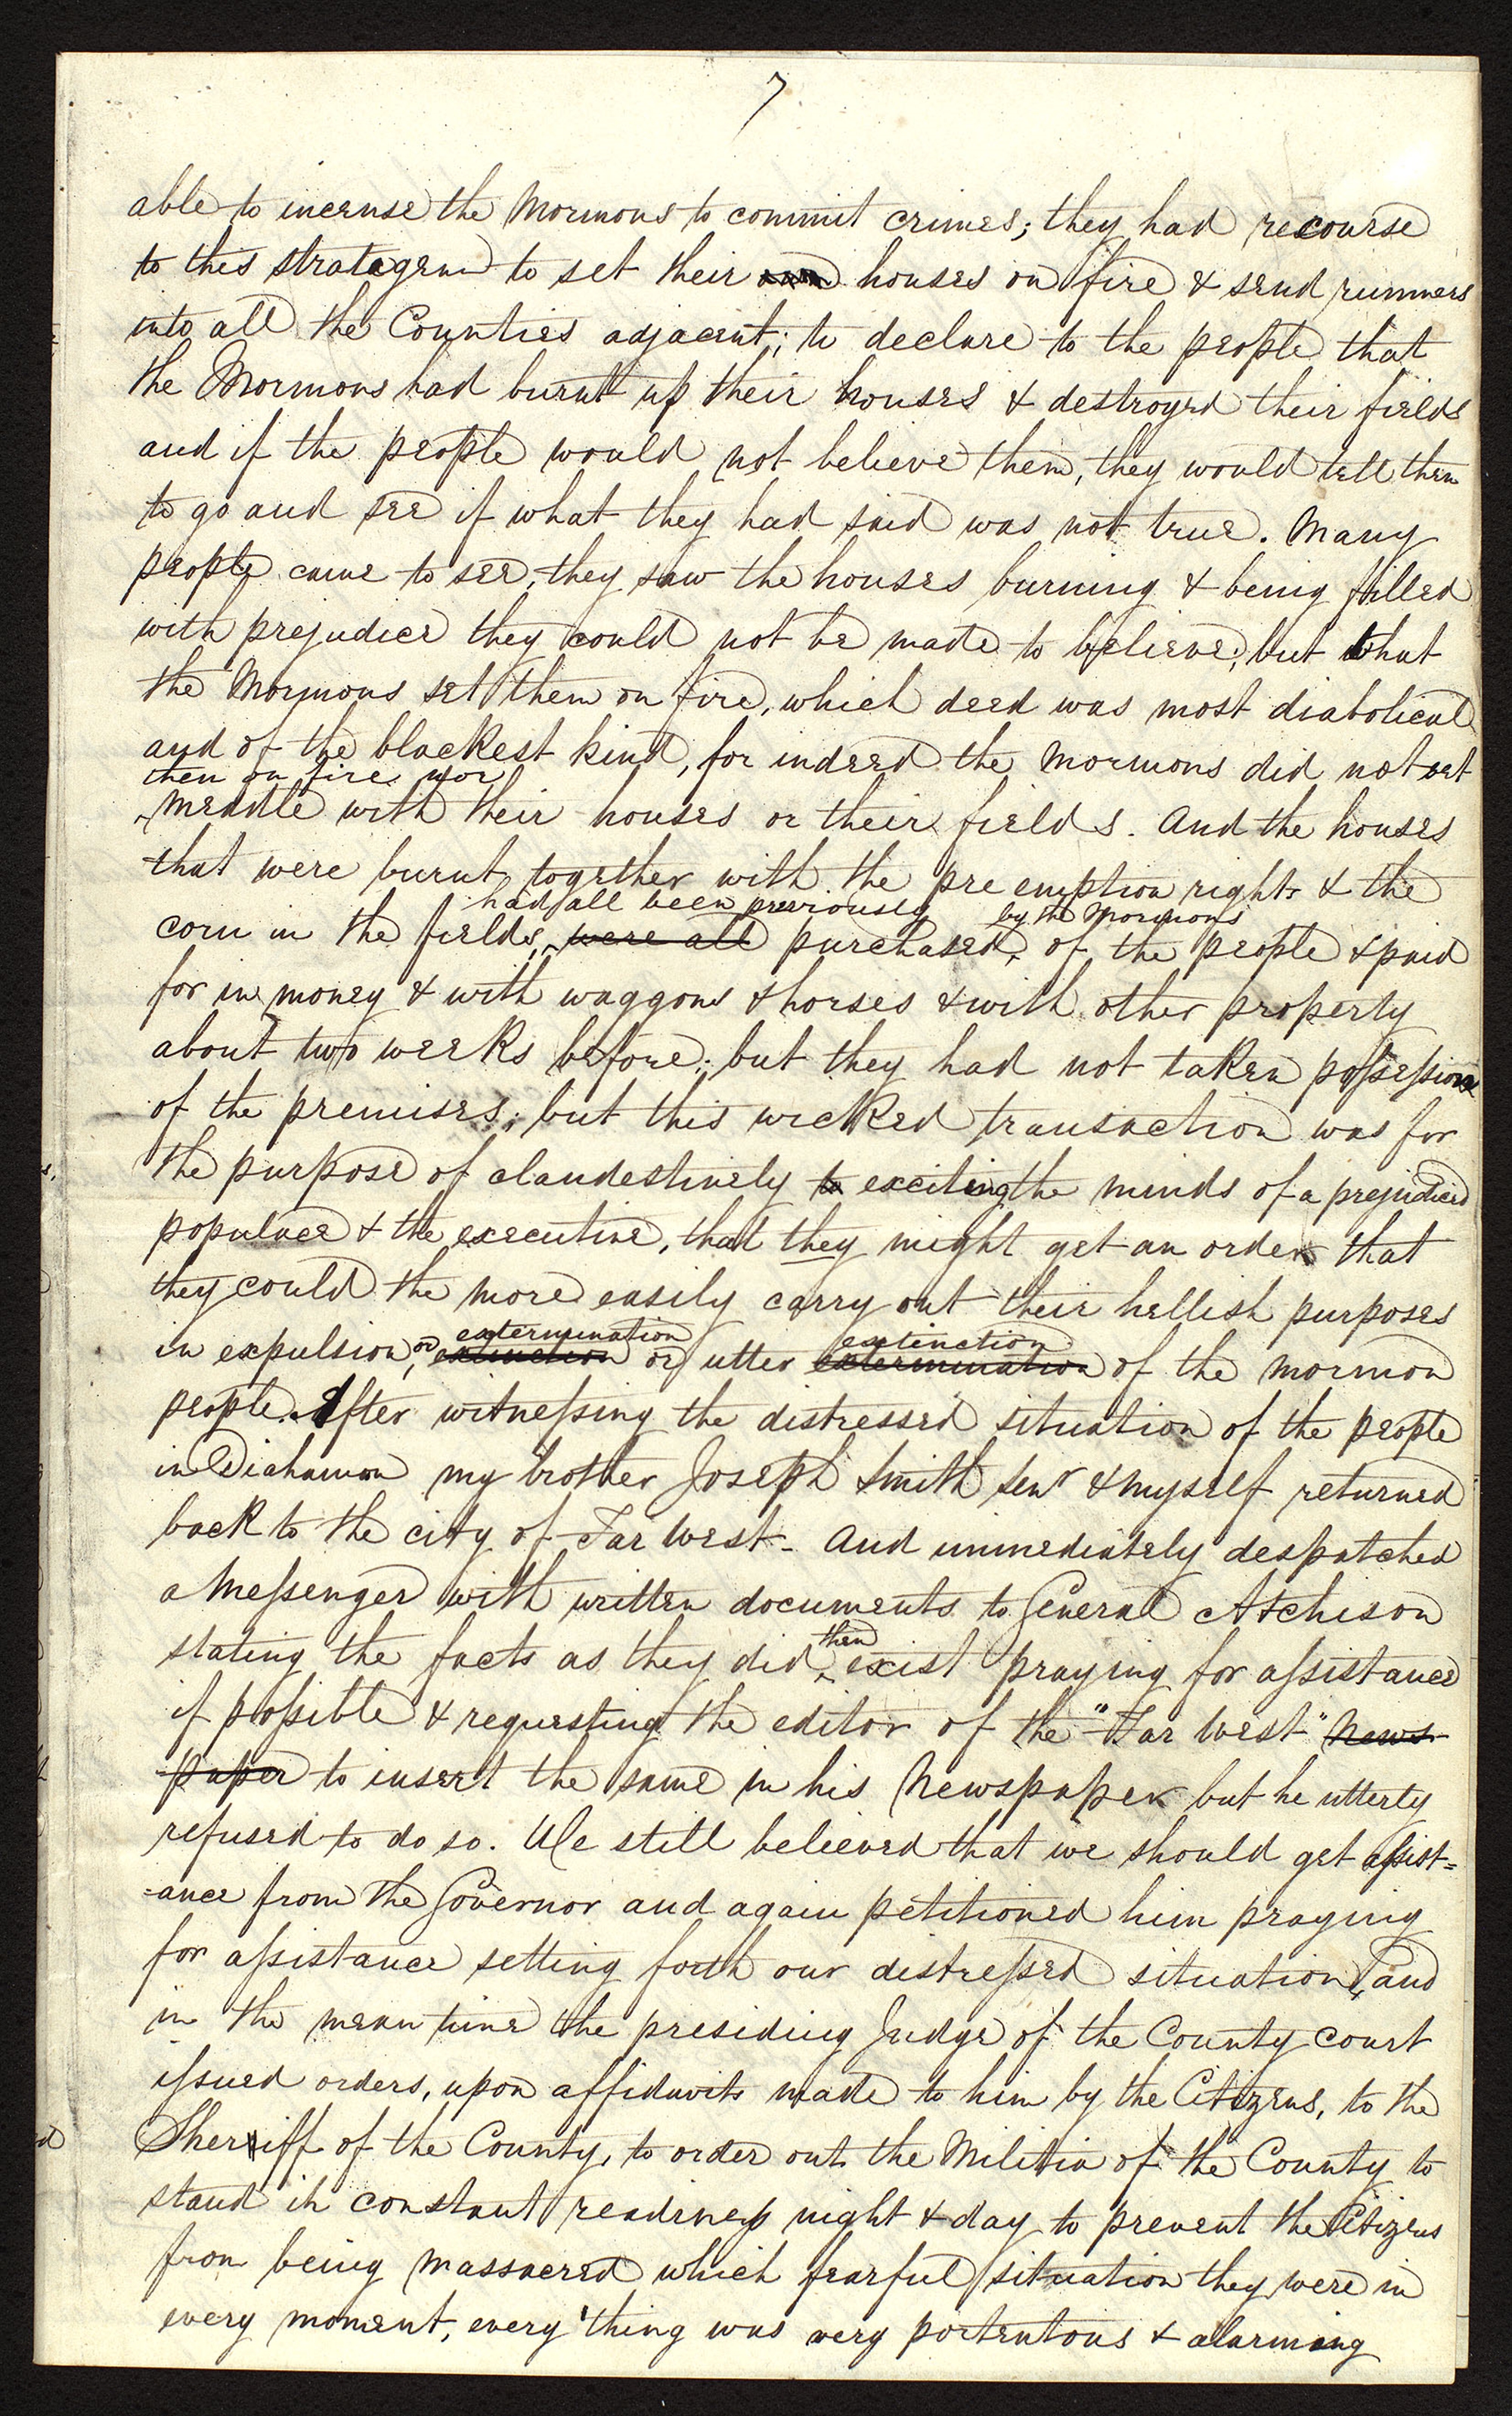 7
able to incense the Mormons to commit crimes; they had recourse
to this stratagem to set their own houses on fire & send runners
into all the Counties adjacent; to declare to the people that
the Mormons had burnt up their houses & destroyed their fields
and if the people would not believe them, they would tell them
to go and see if what they had said was not true. Many
people came to see, they saw the houses burning & being filled
with prejudice they could not be made to believe, but that
the Mormons set them on fire, which deed was most diabolical
and of the blackest kind, for indeed the Mormons did not set
them on fire, nor
meddle with their houses or their fields. And the houses
that were burnt, together with the pre emption rights & the
had all been previously by the Mormons
corn in the fields, were all purchased, of the people & paid
for in money & with waggons & horses & with other property
about two weeks before; but they had not taken possession
of the premises; but this wicked transaction was for
the purpose of clandestinely to exciting the minds of a prejudiced
populace & the executive, that they might get an order that
they could the more easily carry out their hellish purposes
extermination extinction
in expulsion, or extinction or utter extermination of the mormon
people. After witnessing the distressed situation of the people
in Diahamon my brother Joseph Smith Senr & myself returned
back to the city of Far West- And immediately despatched
a Messenger with written documents to General Atchison
then
stating the facts as they did exist praying for assistance
if possible & requesting the editor of the "Far West" News-
paper to insert the same in his Newspaper but he utterly
refused to do so. We still believed that we should get assist=
=ance from the Governor and again petitioned him praying
for assistance setting forth our distressed situation, and
in the mean time the presiding Judge of the County court
issued orders, upon affidavits made to him by the Citizens, to the
Sheriff of the County, to order out the Militia of the County to
stand in constant readiness night & day to prevent the Citizens
from being massacred which fearful situation they were in
every moment, every thing was very portentous & alarming